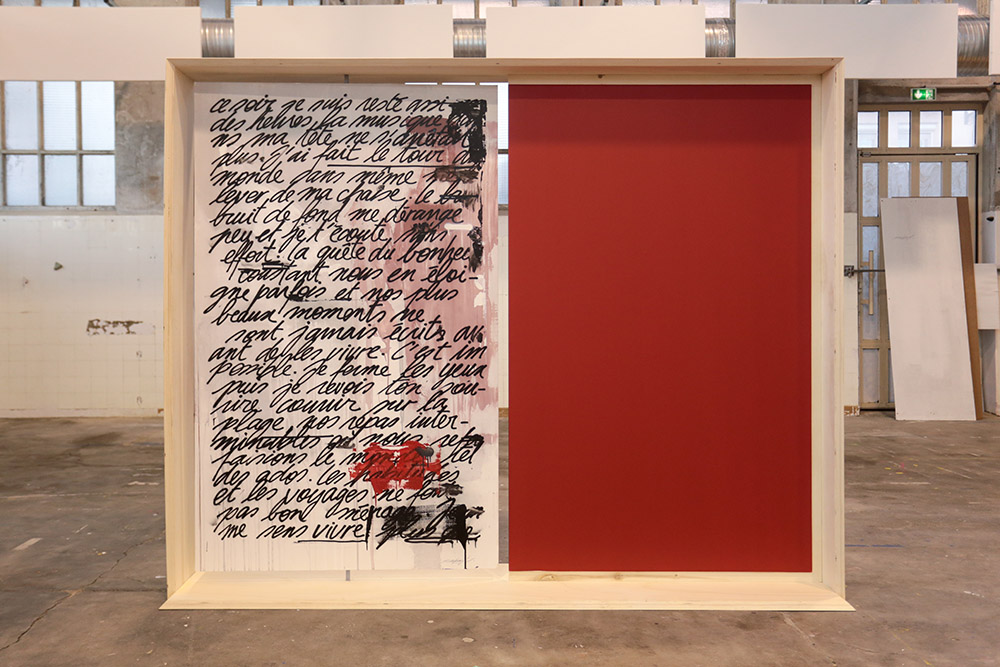 ce soir je suis resté assi
des heures. La musique
ns ma tête ne s'arrêtait
plus. J'ai fait le tour du
monde sans même me
lever de ma chaise. le
bruit de fond me dérange
peu et je t'écoute, sans
effort. la quête du bonheur
constant nous en éloi-
gne parfois et nos plus
beaux moments ne
sont jamais écrits av
ant de les vivre. C'est im
possible. je ferme les yeux
puis je revois ton sou-
rire courir sur la
plage, nos repas inter-
minables où nous
faisions le
des ados. Les
et les voyages ne font
pas bon ménage.
me sens vivre plus que